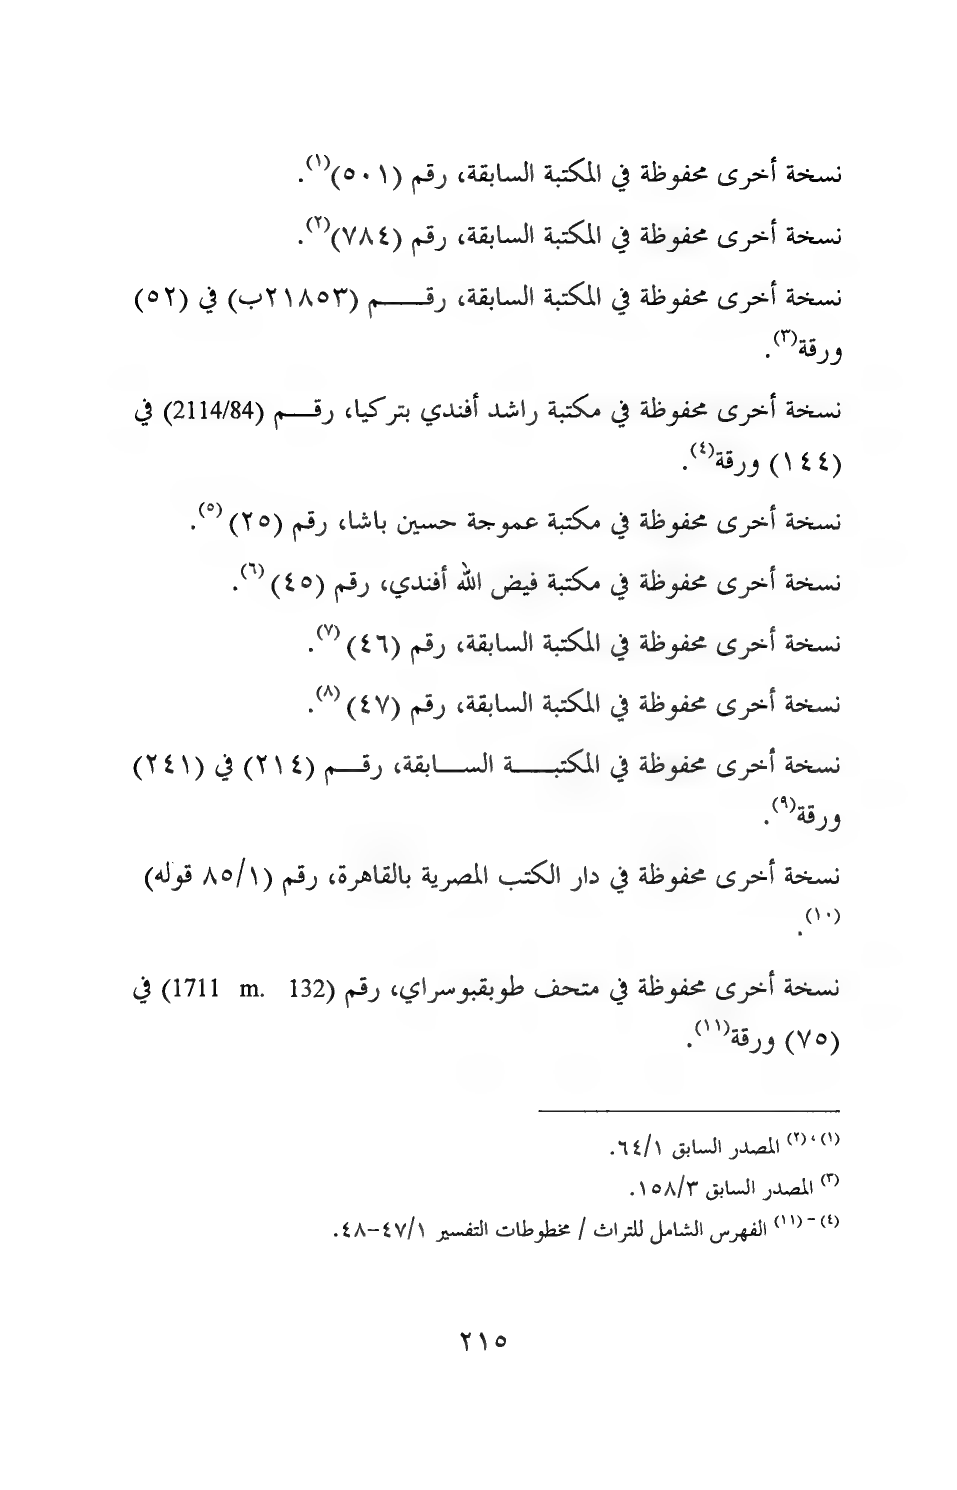 نسخة أخرى محفوظة في المكتبة السابقة، رقم (٥٠١)(١).
نسخة أخرى محفوظة في المكتبة السابقة، رقم (٧٨٤)(٢).
نسخة أخرى محفوظة في المكتبة السابقة، رقـــــم (٢١٨٥٣ب) في (٥٢)
ورقة(٣).
نسخة أخرى محفوظة في مكتبة راشد أفندي بتركيا، رقـــم (2114/84) في
(١٤٤) ورقة(٤).
نسخة أخرى محفوظة في مكتبة عموجة حسين باشا، رقم (٢٥) (٥).
نسخة أخرى محفوظة في مكتبة فيض الله أفندي، رقم (٤٥) (٦).
نسخة أخرى محفوظة في المكتبة السابقة، رقم (٤٦) (٧).
نسخة أخرى محفوظة في المكتبة السابقة، رقم (٤٧) (٨).
نسخة أخرى محفوظة في المكتبـــــة الســـابقة، رقـــم (٢١٤) في (٢٤١)
ورقة(٩).
نسخة أخرى محفوظة في دار الكتب المصرية بالقاهرة، رقم (٨٥/١ قوله)
(١٠).
نسخة أخرى محفوظة في متحف طوبقبوسراي، رقم (1711 m. 132) في
(٧٥) ورقة(١١).
(١)،(٢) المصدر السابق ٦٤/١.
(٣) المصدر السابق ١٥٨/٣.
(٤) – (١١) الفهرس الشامل للتراث / مخطوطات التفسير ٤٧/١–٤٨.
٢١٥